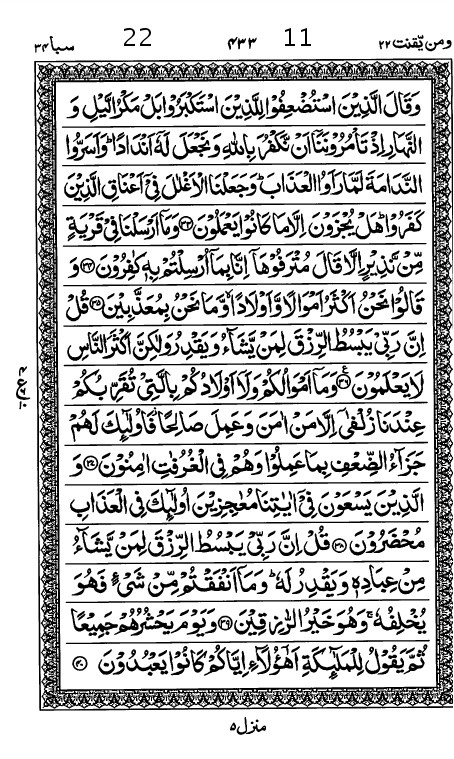 ومن یّقنت ۲۲ 11 ۴۳۳ 22 سبا ۳۴
وَقَالَ الَّذِیْنَ اسْتُضْعِفُوْا لِلَّذِیْنَ اسْتَكْبَرُوْا بَلْ مَكْرُ الَّیْلِ وَ
النَّهَارِ اِذْ تَاْمُرُوْنَنَاۤ اَنْ نَّكْفُرَ بِاللّٰهِ وَ نَجْعَلَ لَهٗۤ اَنْدَادًا ؕ وَ اَسَرُّوا
النَّدَامَةَ لَمَّا رَاَوُا الْعَذَابَ ؕ وَ جَعَلْنَا الْاَغْلٰلَ فِیْۤ اَعْنَاقِ الَّذِیْنَ
كَفَرُوْا ؕ هَلْ یُجْزَوْنَ اِلَّا مَا كَانُوْا یَعْمَلُوْنَ ﴿۳۳﴾ وَ مَاۤ اَرْسَلْنَا فِیْ قَرْیَةٍ
مِّنْ نَّذِیْرٍ اِلَّا قَالَ مُتْرَفُوْهَاۤ ۙ اِنَّا بِمَاۤ اُرْسِلْتُمْ بِهٖ كٰفِرُوْنَ ﴿۳۴﴾ وَ
قَالُوْا نَحْنُ اَكْثَرُ اَمْوَالًا وَّ اَوْلَادًا ۙ وَّ مَا نَحْنُ بِمُعَذَّبِیْنَ ﴿۳۵﴾ قُلْ
اِنَّ رَبِّیْ یَبْسُطُ الرِّزْقَ لِمَنْ یَّشَآءُ وَ یَقْدِرُ وَ لٰكِنَّ اَكْثَرَ النَّاسِ
لَا یَعْلَمُوْنَ ﴿۳۶﴾ وَ مَاۤ اَمْوَالُكُمْ وَ لَاۤ اَوْلَادُكُمْ بِالَّتِیْ تُقَرِّبُكُمْ
عِنْدَنَا زُلْفٰۤی اِلَّا مَنْ اٰمَنَ وَ عَمِلَ صَالِحًا ؗ فَاُولٰٓىِٕكَ لَهُمْ
جَزَآءُ الضِّعْفِ بِمَا عَمِلُوْا وَ هُمْ فِی الْغُرُفٰتِ اٰمِنُوْنَ ﴿۳۷﴾ وَ
الَّذِیْنَ یَسْعَوْنَ فِیْۤ اٰیٰتِنَا مُعٰجِزِیْنَ اُولٰٓىِٕكَ فِی الْعَذَابِ
مُحْضَرُوْنَ ﴿۳۸﴾ قُلْ اِنَّ رَبِّیْ یَبْسُطُ الرِّزْقَ لِمَنْ یَّشَآءُ
مِنْ عِبَادِهٖ وَ یَقْدِرُ لَهٗ ؕ وَ مَاۤ اَنْفَقْتُمْ مِّنْ شَیْءٍ فَهُوَ
یُخْلِفُهٗ ۚ وَ هُوَ خَیْرُ الرّٰزِقِیْنَ ﴿۳۹﴾ وَ یَوْمَ یَحْشُرُهُمْ جَمِیْعًا
ثُمَّ یَقُوْلُ لِلْمَلٰٓىِٕكَةِ اَهٰۤؤُلَآءِ اِیَّاكُمْ كَانُوْا یَعْبُدُوْنَ ﴿۴۰﴾
منزل ۵